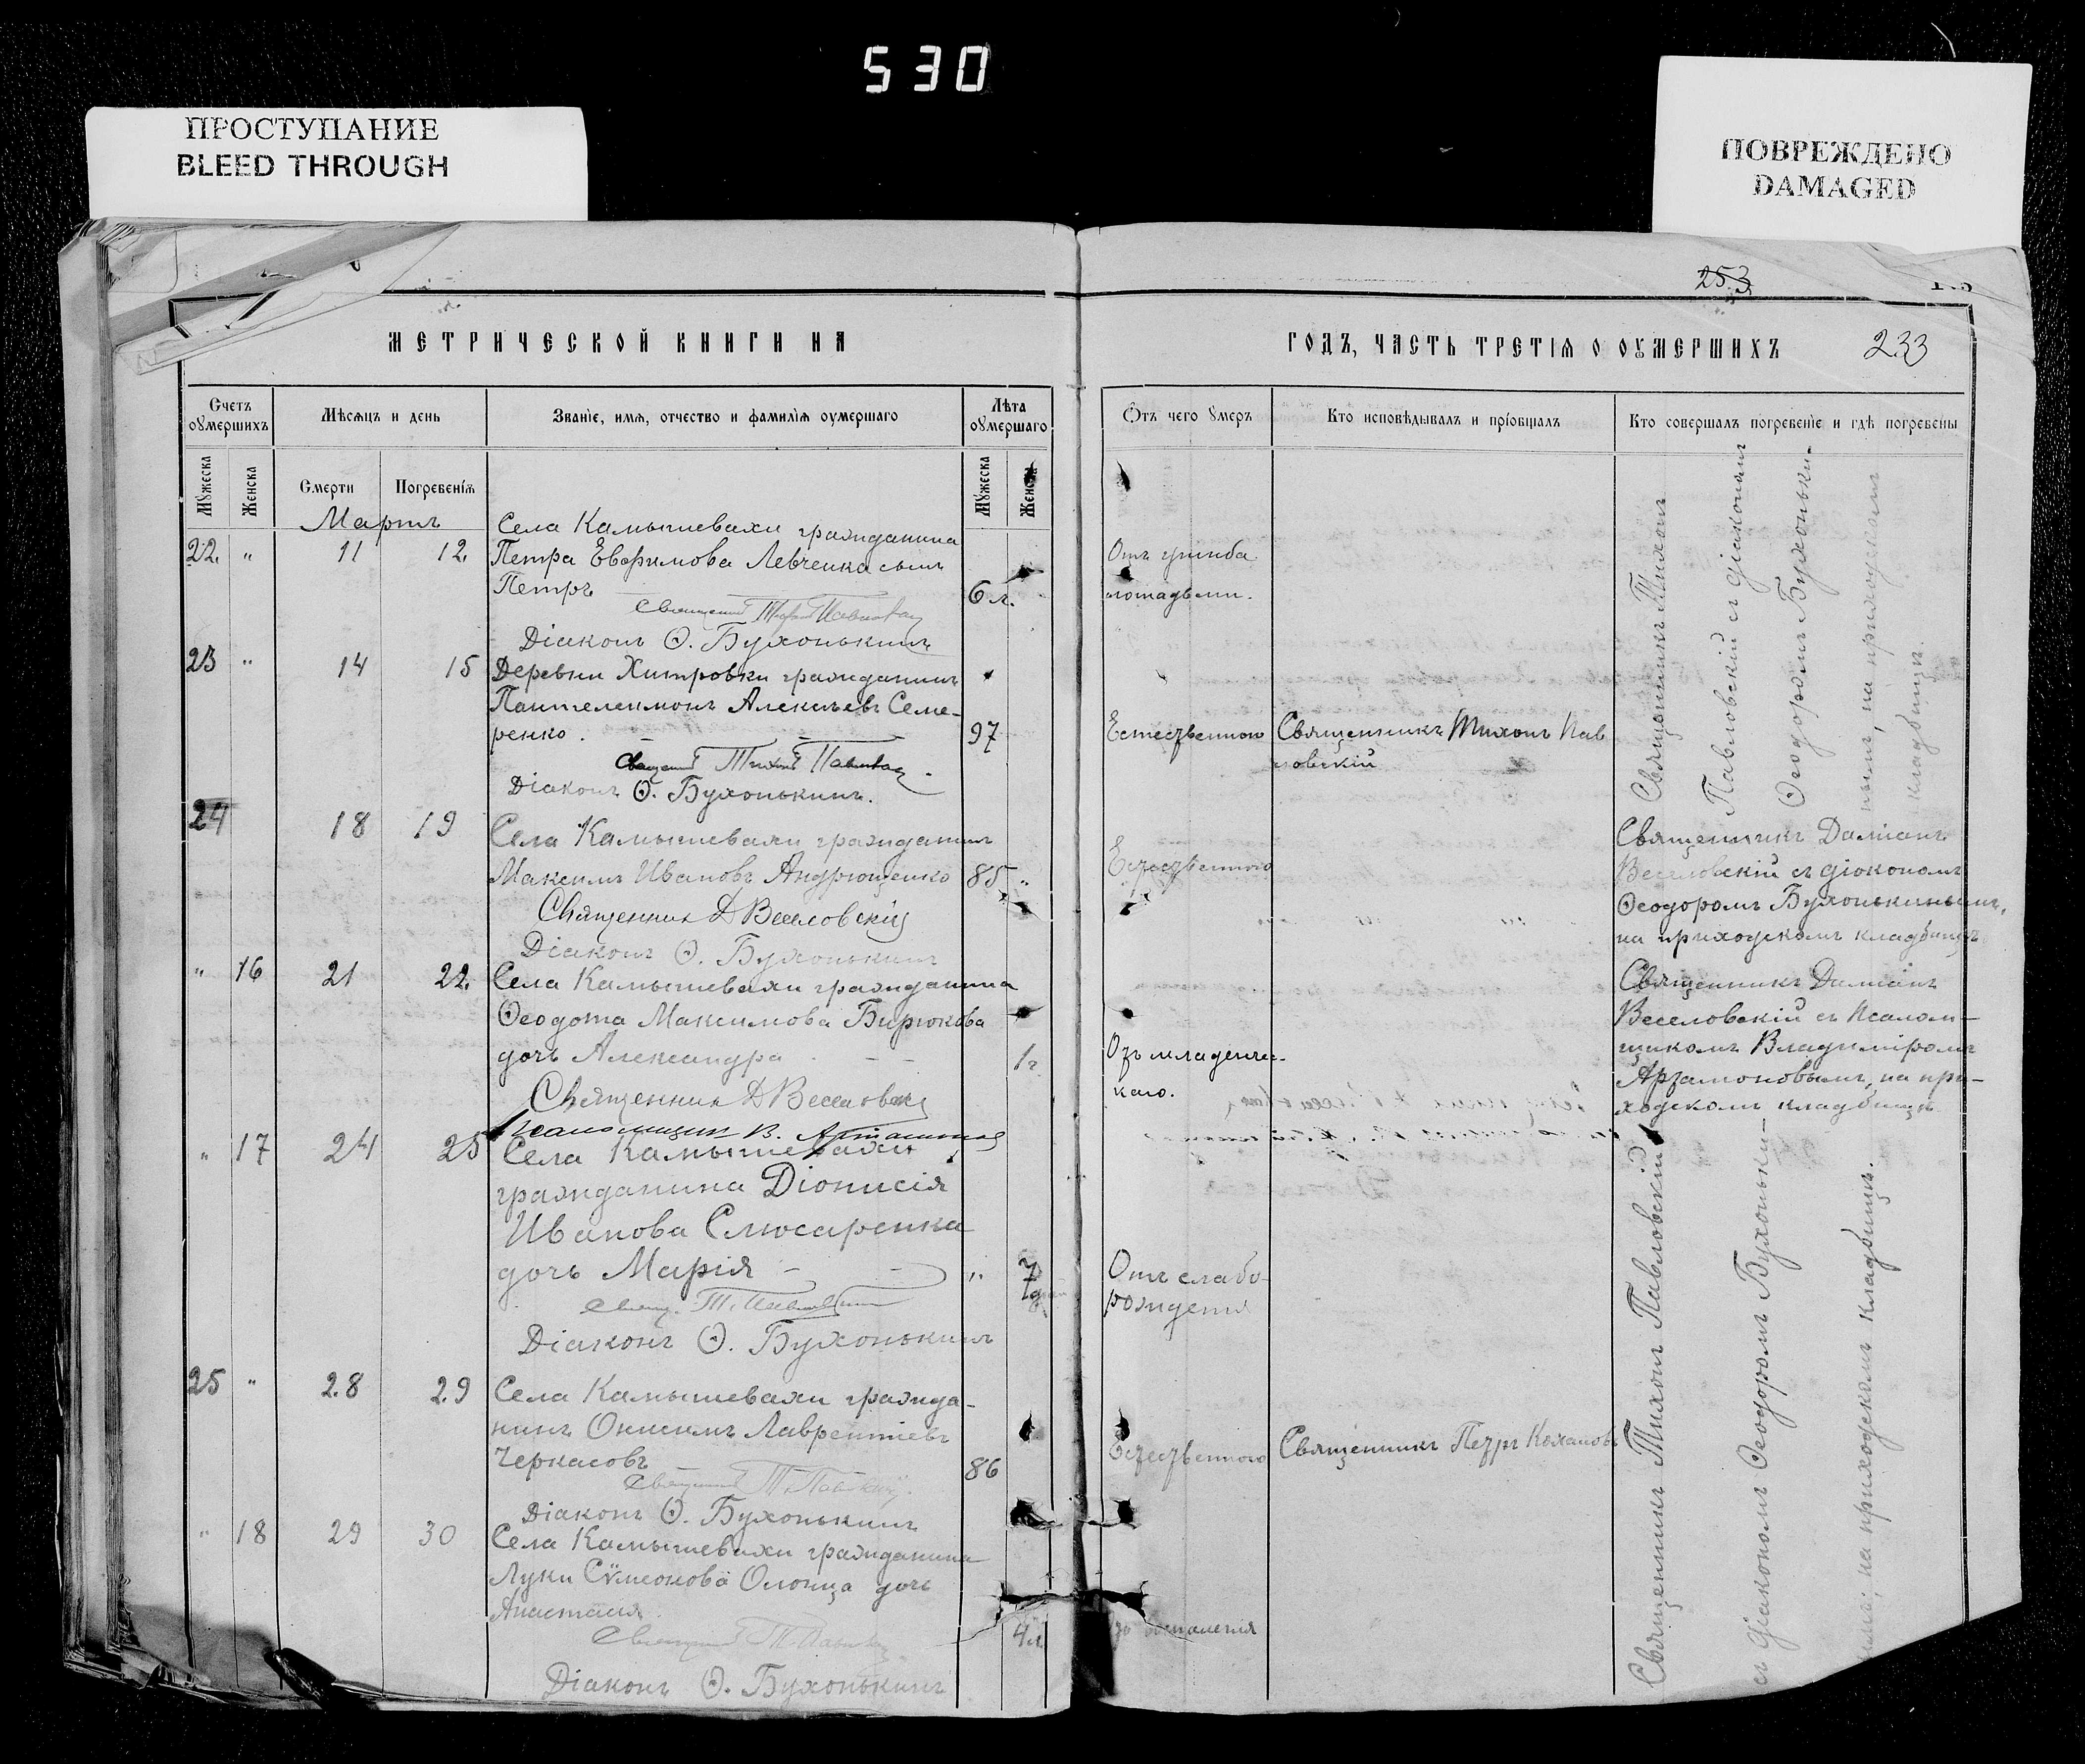 530
ПРОСТУПАНИЕ
BLEED THROUGH
ПОВРЕЖДЕНО
DAMAGED
253
МЕТРИЧЕСКОЙ КНИГИ НА
ГОДЪ, ЧАСТЬ ТРЕТІЯ О ОУМЕРШИХЪ
233
Счетъ оумершихъ
Мѣсяцъ и день
Званіе, имя, отчество и фамилія оумершаго
Лѣта оумершаго
Отъ чего умеръ
Кто исповѣдывалъ и пріобщалъ
Кто совершалъ погребеніе и гдѣ погребены
Мужеска
Женска
Смерти
Погребенія
Мужеска
Женска
Мартъ
Села Камышевахи гражданина
22. " 11 12. Петра Евфимова Левченка сынъ
Петръ 6 л.
Священникъ Тихонъ Павловскій
Діаконъ Ѳ. Бухонькинъ
Отъ
лошадьми.
23 " 14 15 Деревни Хитровки гражданинъ
Пантелеимонъ Алексѣевъ Семе-
ренко. 97
Естественно Священникъ Тихонъ Пав
ловскій
Священникъ Тихонъ Павловскій
Діаконъ Ѳ. Бухонькинъ.
Священникъ Тихонъ
Павловскій съ діакономъ
Ѳеодоромъ Бухоньки-
нымъ, на приходскомъ
кладбищѣ.
24 18 19 Села Камышевахи гражданинъ
Максимъ Ивановъ Андрющенко 85 "
Естественного
Священник Д Веселовскій
Діаконъ Ѳ. Бухонькинъ
Священникъ Даміанъ
Веселовскій съ діакономъ
Ѳеодоромъ Бухонькинымъ,
на приходскомъ кладбищѣ
" 16 21 22. Села Камышевахи гражданина
Ѳеодота Максимова Бирюкова
дочь Александра - - 1 г.
Отъ младенчес-
каго.
Священник Д Веселовскій
Псаломщик В.
Священникъ Даміанъ
Веселовскій съ Псалом-
щикомъ Владиміромъ
Артамоновымъ, на при-
ходскомъ кладбищѣ
" 17 24 25 Села Камышевахи
гражданина Діонисія
Иванова Слюсаренка
дочь Марія - - "
Отъ слабо-
рожденія
Свящ. Т. Павловскій
Діаконъ Ѳ. Бухонькинъ
25 " 28 29 Села Камышевахи гражда-
нинъ Онисимъ Лаврентіевъ
Черкасовъ 86
Естественного Священникъ Петръ Кохановъ
Священникъ Т. Павловскій.
Діаконъ Ѳ. Бухонькинъ
" 18 29 30 Села Камышевахи гражданина
Луки Сѵмеонова Олонца дочь
Анастасія. 4 л
воспаленія
Священникъ Т. Павловскій
Діаконъ Ѳ. Бухонькинъ
Священникъ Тихонъ Павловскій
съ діакономъ Ѳеодоромъ Бухоньки-
нымъ, на приходскомъ кладбищѣ.